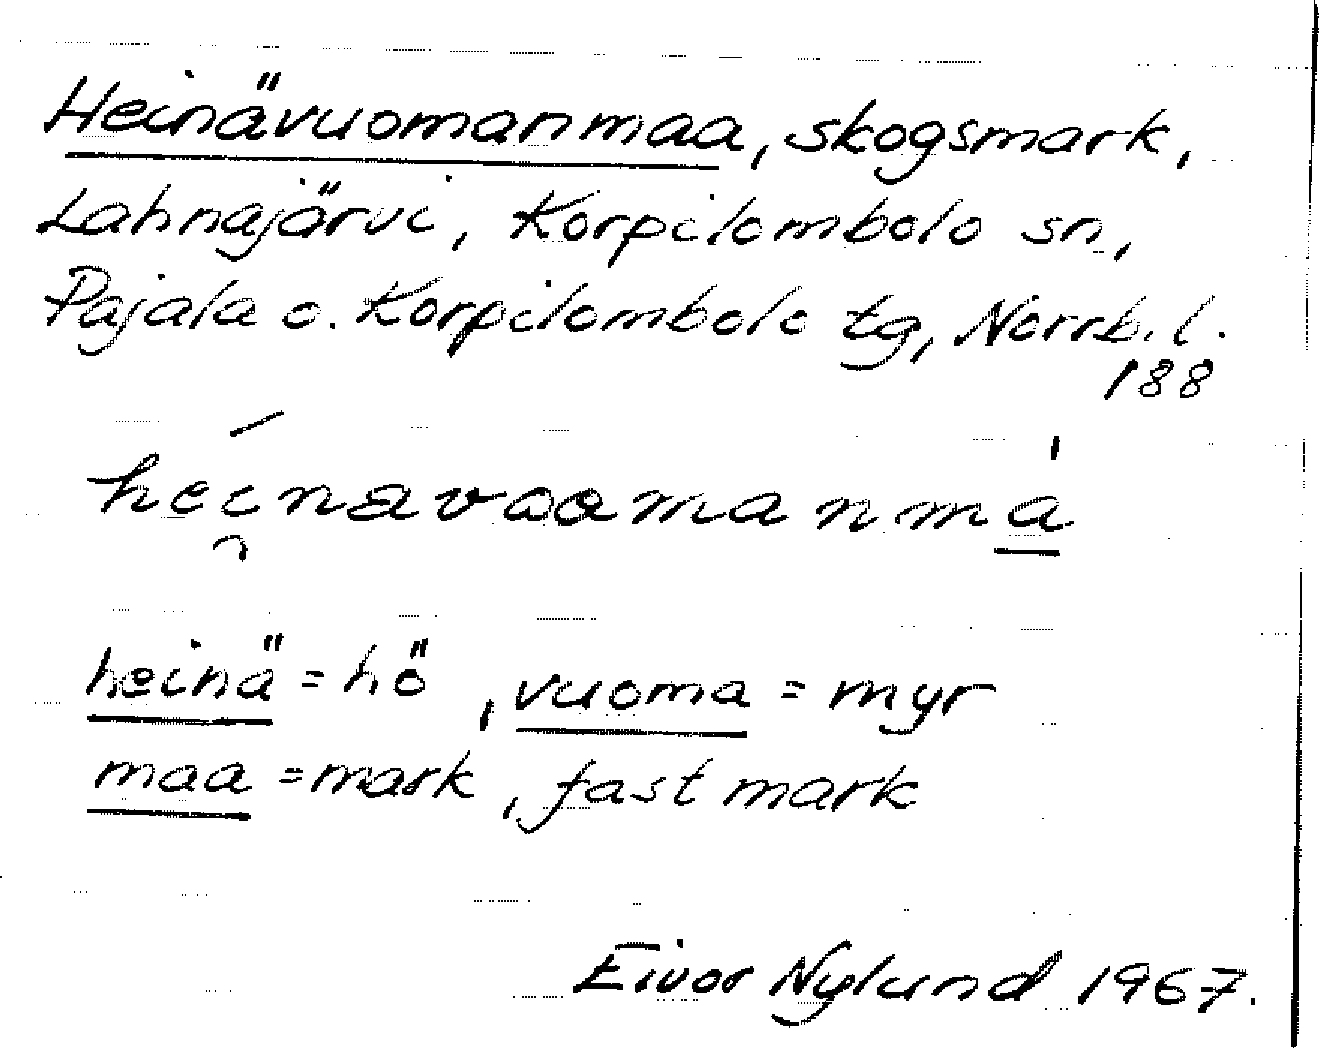 Heinävuomanmaa, skogsmark,
Lahnajärvi, Korpilombolo sn,
Pajala o. Korpilombolo tg, Norrb. l.
188
heinä = hö, vuoma = myr
maa = mark, fast mark
Eivor Nylund 1967.